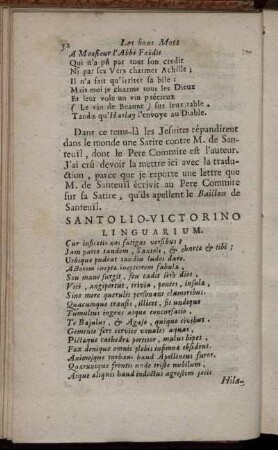 52 Les bons Mots
A Monsieur l'Abbé Faidit
Qui n'a pû par tout son credit
Ni par ses Vers charmer Achille ;
Il n'a fait qu'irriter sa bile :
Mais moi je charme tous les Dieux
Et leur vole un vin précieux
( Le vin de Beaune ) sur leur table,
Tandis qu'Harlay l'envoye au Diable.
Dans ce tems-là les Jesuites répandirent
dans le monde une Satire contre M. de San-
teuil, dont le Pere Commire est l'auteur.
J'ai crû devoir la mettre ici avec la tradu-
ction, parce que je raporte une lettre que
M. de Santeuil écrivit au Pere Commire
sur sa Satire, qu'ils apellent le Baillon de
Santeuil.
SANTOLIO-VICTORINO
LINGUARIUM.
Cur infictis nos fatigas versibus ?
Jam parce tandem, Santole, & charta & tibi ;
Urbique pudeat tandiu ludos dare.
Actorem inepta ineptiorem fabula,
Seu mane surgit, seu cadit sero dies,
Vici, angiportus, trivia, pontes, insula,
Sine more querulis personant clamoribus.
Quacumque transis, illicet, fit undique
Tumultus ingens atque concursatio,
Te Bajulus, & Agaso, quique civibus
Gemente fert cervice venales aquas,
Pictaque cathedra portitor, malus bipes,
Fax denique omnis plebis infima obsident.
Animosque turbans haud Apollineus furor.
Quacumque frontis unde triste nubilum,
Atque aliquis haud indoctus agrestem jocis
Hila-